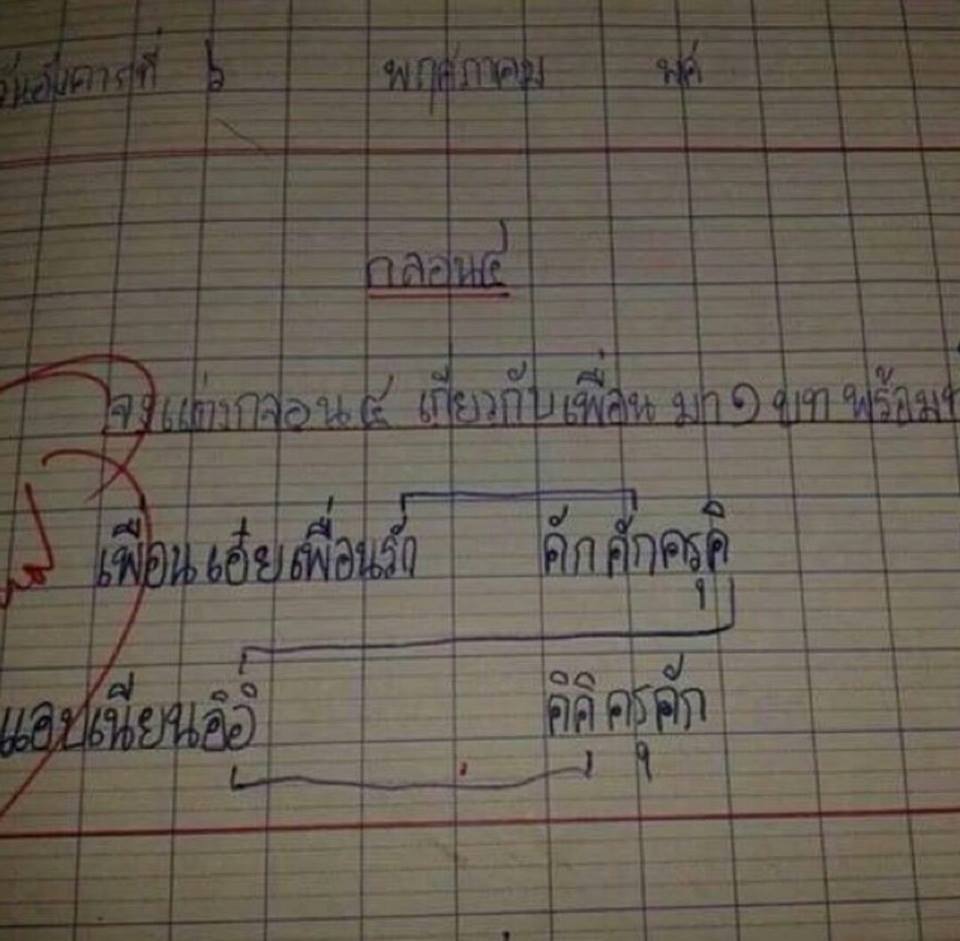 วันอังคารที่ ๖ พฤศภาคม พศ
กลอน๔
จงแต่งกลอน๔ เกี่ยวกับเพื่อน มา ๑ บท พร้อม
เพื่อนเอ๋ยเพื่อนรัก คักคักครุคิ
แอบเนียนอิอิ คิคิครุคัก